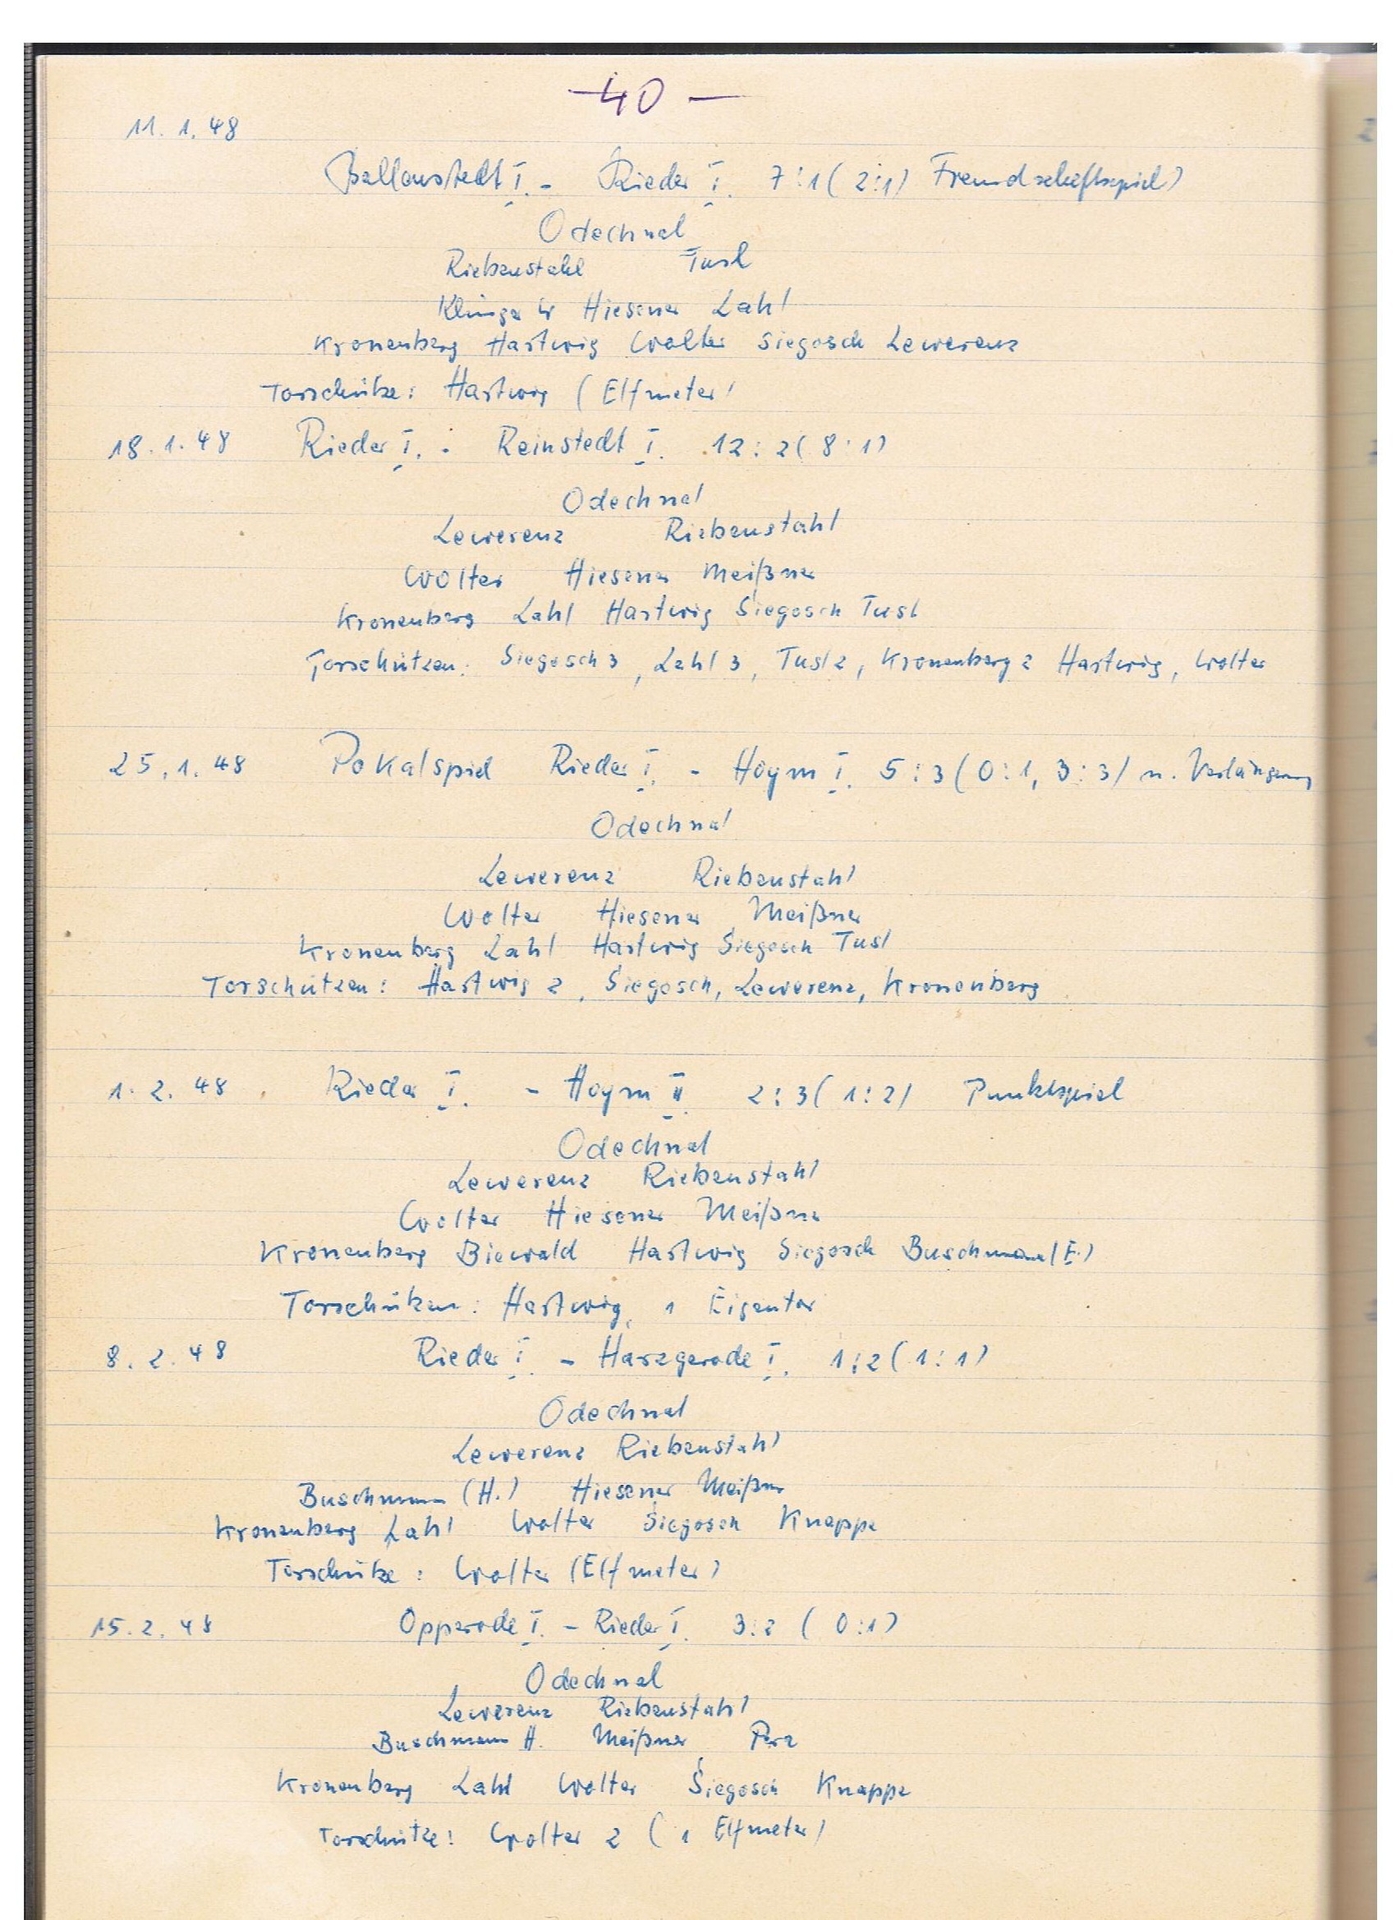 - 40 -
11. 1. 48
Ballenstedt I. - Rieder I. 7:1 (2:1) Freundschaftsspiel)
Odechnal
Riebenstahl Tusl
Klinger W Hiesener Lahl
Kronenberg Hartwig Wolter Siegosch Lewerenz
Torschütze: Hartwig (Elfmeter)
18. 1. 48 Rieder I. - Reinstedt I. 12:2 (8:1)
Odechnal
Lewerenz Riebenstahl
Wolter Hiesener Meißner
Kronenberg Lahl Hartwig Siegosch Tusl
Torschützen: Siegosch 3, Lahl 3, Tusl 2, Kronenberg 2 Hartwig, Wolter
25. 1. 48 Pokalspiel Rieder I. - Hoym I. 5:3 (0:1, 3:3) n. Verlängerung
Odechnal
Lewerenz Riebenstahl
Wolter Hiesener Meißner
Kronenberg Lahl Hartwig Siegosch Tusl
Torschützen: Hartwig 2, Siegosch, Lewerenz, Kronenberg
1. 2. 48 Rieder I. - Hoym II. 2:3 (1:2) Punktspiel
Odechnal
Lewerenz Riebenstahl
Wolter Hiesener Meißner
Kronenberg Biewald Hartwig Siegosch Buschmann (E.)
Torschützen: Hartwig, 1 Eigentor
8. 2. 48 Rieder I. - Harzgerode I. 1:2 (1:1)
Odechnal
Lewerenz Riebenstahl
Buschmann (H.) Hiesener Meißner
Kronenberg Lahl Wolter Siegosch Knappe
Torschütze: Wolter (Elfmeter)
15. 2. 48 Opperode I. - Rieder I. 3:2 (0:1)
Odechnal
Lewerenz Riebenstahl
Buschmann H. Meißner
Kronenberg Lahl Wolter Siegosch Knappe
Torschütze: Wolter 2 (1 Elfmeter)